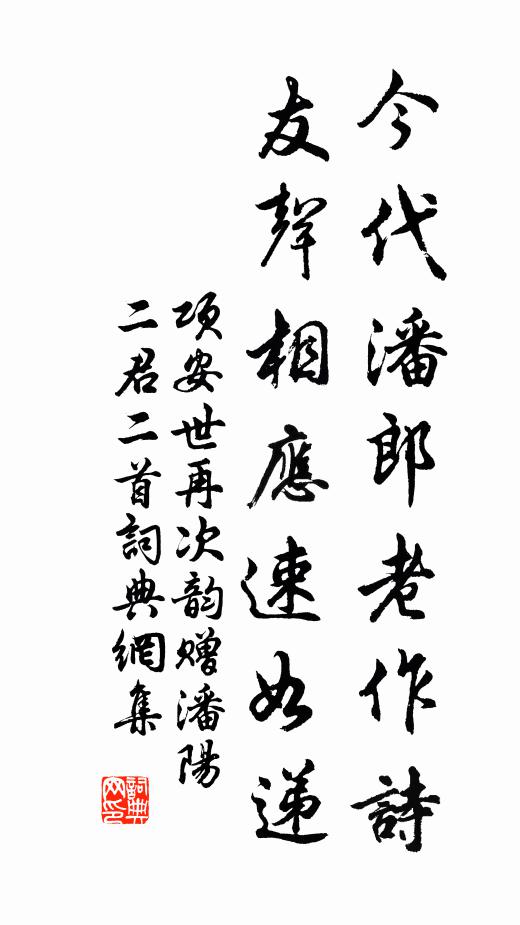 今代潘郎老作詩
友聲相應速如遞
項安世再次韵赠潘陽
二君二首詞典網集
詞典网印